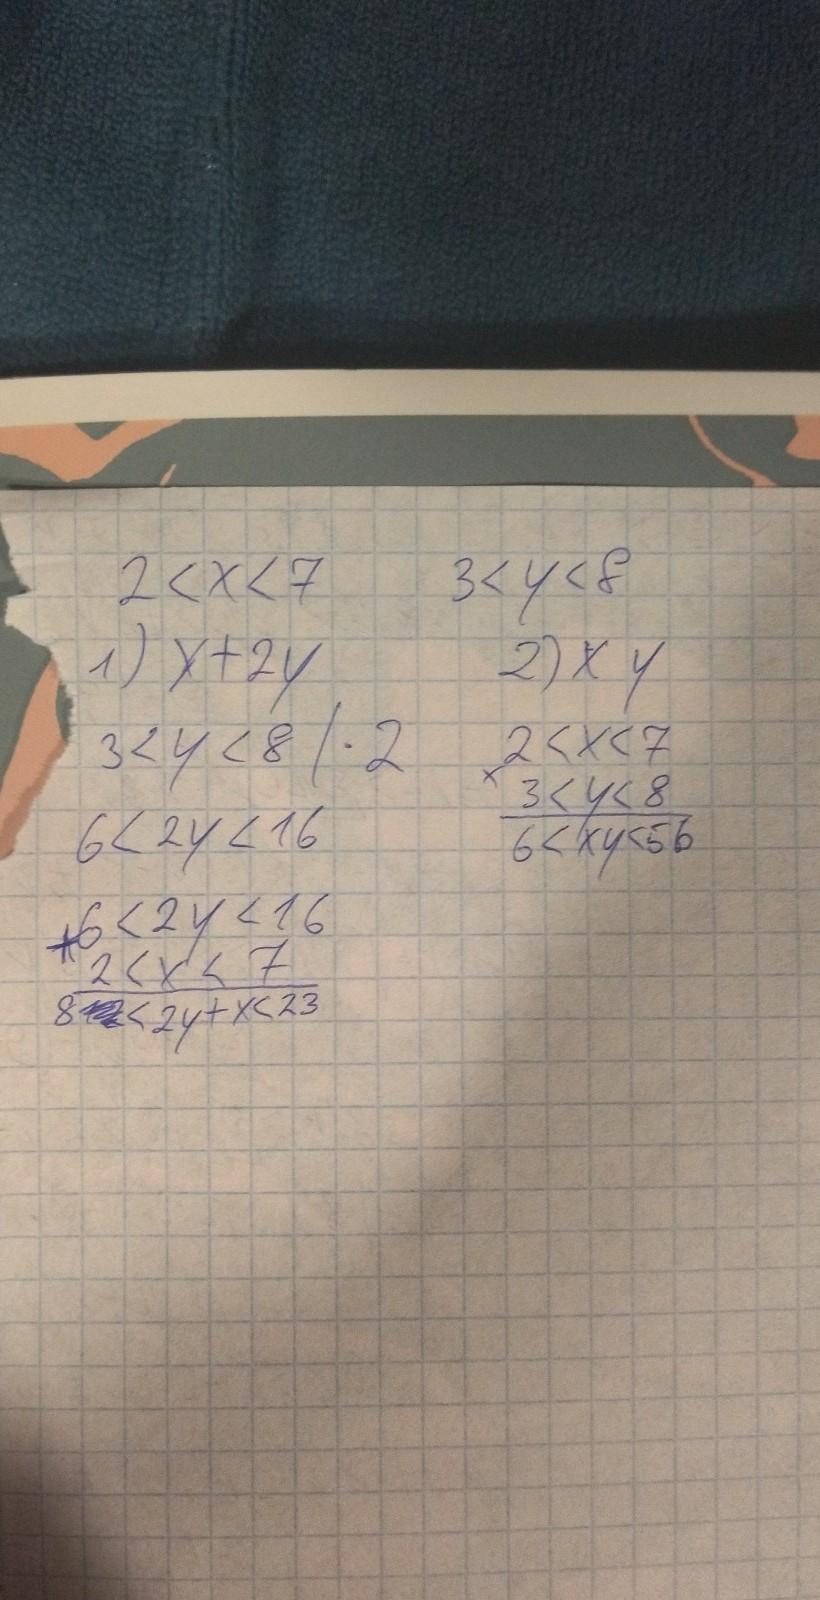 2<x<7 3<y<8
1) x+2y
3<y<8 /·2
6<2y<16
+6<2y<16
2<x<7
8<2y+x<23
2) xy
2<x<7
×
3<y<8
6<xy<56